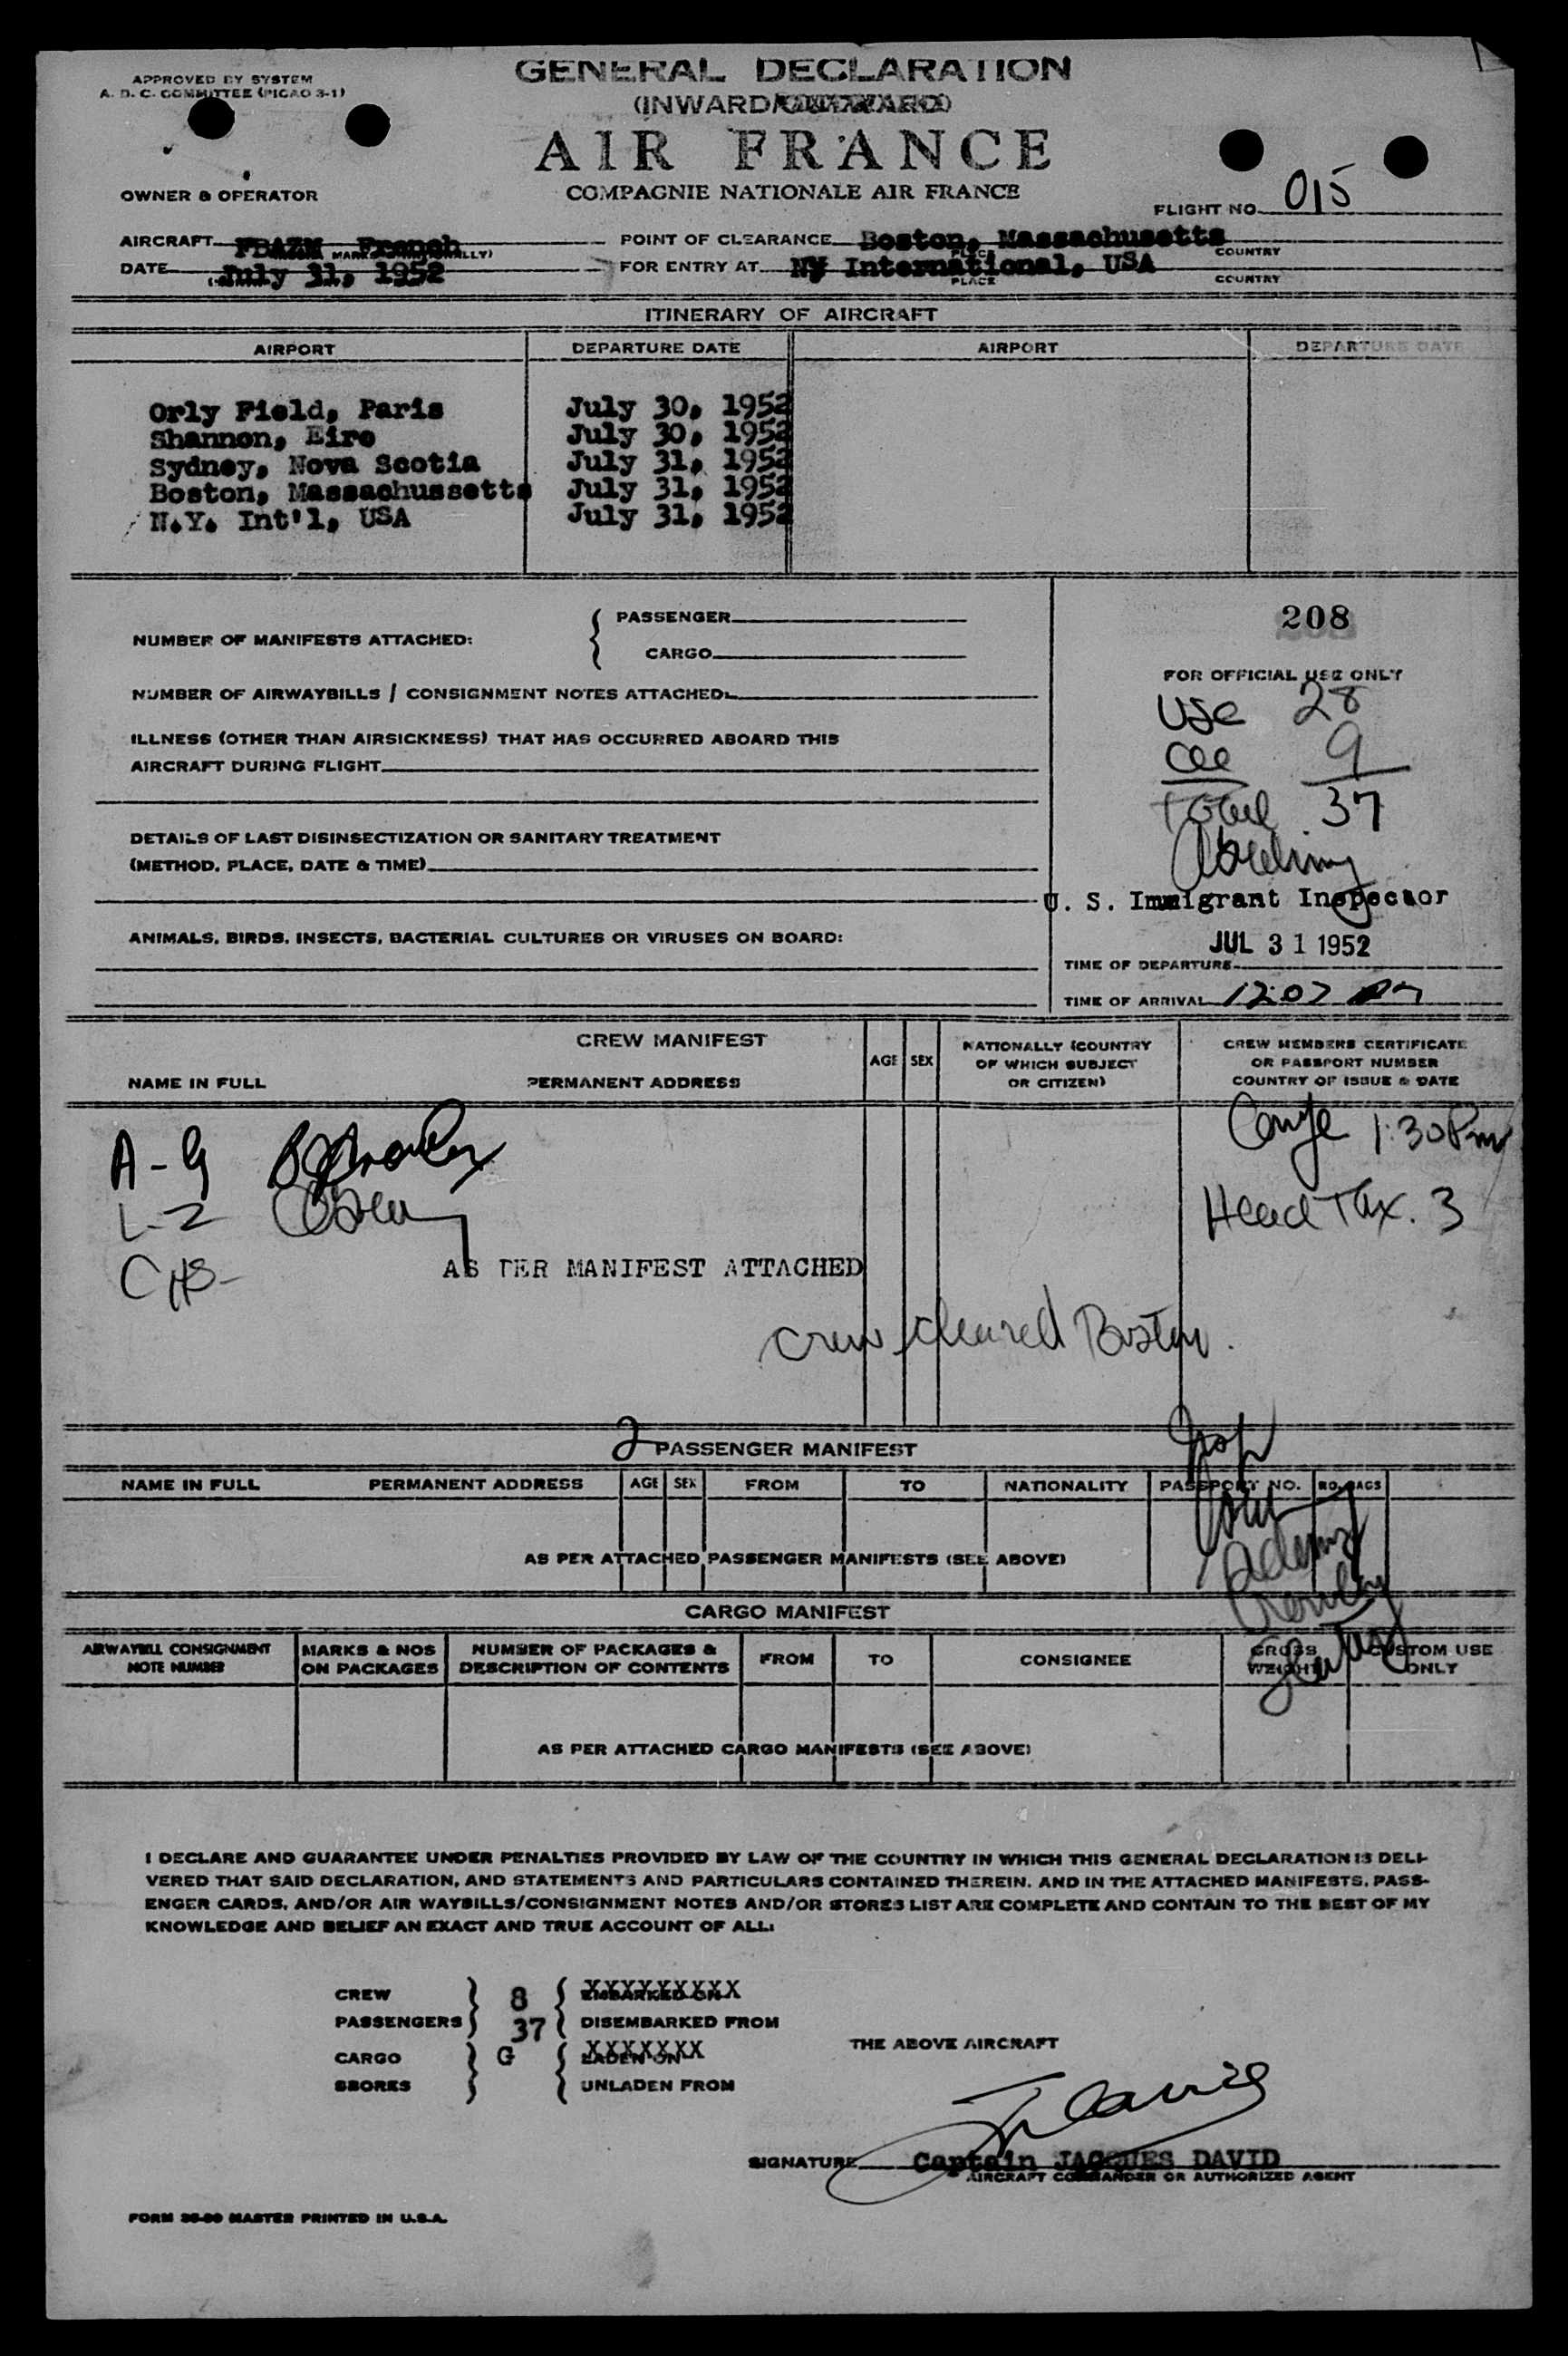 APPROVED BY SYSTEM
A. D. C. COMMITTEE (PICAO 3-1)
GENERAL DECLARATION
(INWARD/OUTWARD)
AIR FRANCE
COMPAGNIE NATIONALE AIR FRANCE
OWNER & OPERATOR
FLIGHT NO. 015
AIRCRAFT FBAZM French
POINT OF CLEARANCE Boston, Massachusetts
PLACE COUNTRY
DATE July 31, 1952
FOR ENTRY AT NY International, USA
PLACE COUNTRY
ITINERARY OF AIRCRAFT
AIRPORT DEPARTURE DATE AIRPORT DEPARTURE DATE
Orly Field, Paris July 30, 1952
Shannon, Eire July 30, 1952
Sydney, Nova Scotia July 31, 1952
Boston, Massachussetts July 31, 1952
N.Y. Int'l, USA July 31, 1952
NUMBER OF MANIFESTS ATTACHED:
PASSENGER
CARGO
NUMBER OF AIRWAYBILLS / CONSIGNMENT NOTES ATTACHED:
ILLNESS (OTHER THAN AIRSICKNESS) THAT HAS OCCURRED ABOARD THIS
AIRCRAFT DURING FLIGHT
DETAILS OF LAST DISINSECTIZATION OR SANITARY TREATMENT
(METHOD, PLACE, DATE & TIME)
ANIMALS, BIRDS, INSECTS, BACTERIAL CULTURES OR VIRUSES ON BOARD:
208
FOR OFFICIAL USE ONLY
USC 28
9
Total 37
U. S. Immigrant Inspector
JUL 31 1952
TIME OF DEPARTURE
TIME OF ARRIVAL 12:07
CREW MANIFEST
NAME IN FULL PERMANENT ADDRESS
AGE SEX
NATIONALLY (COUNTRY
OF WHICH SUBJECT
OR CITIZEN)
CREW MEMBERS CERTIFICATE
OR PASSPORT NUMBER
COUNTRY OF ISSUE & DATE
1:30 Pm
A-G
L-Z
Head Tax. 3
AS PER MANIFEST ATTACHED
Crew cleared Boston.
2
PASSENGER MANIFEST
NAME IN FULL PERMANENT ADDRESS AGE SEX FROM TO NATIONALITY PASSPORT NO. NO. BAGS
AS PER ATTACHED PASSENGER MANIFESTS (SEE ABOVE)
CARGO MANIFEST
AIRWAYBILL CONSIGNMENT
NOTE NUMBER
MARKS & NOS
ON PACKAGES
NUMBER OF PACKAGES &
DESCRIPTION OF CONTENTS
FROM TO CONSIGNEE
GROSS
WEIGHT
CUSTOM USE
ONLY
AS PER ATTACHED CARGO MANIFESTS (SEE ABOVE)
I DECLARE AND GUARANTEE UNDER PENALTIES PROVIDED BY LAW OF THE COUNTRY IN WHICH THIS GENERAL DECLARATION IS DELI-
VERED THAT SAID DECLARATION, AND STATEMENTS AND PARTICULARS CONTAINED THEREIN, AND IN THE ATTACHED MANIFESTS, PASS-
ENGER CARDS, AND/OR AIR WAYBILLS/CONSIGNMENT NOTES AND/OR STORES LIST ARE COMPLETE AND CONTAIN TO THE BEST OF MY
KNOWLEDGE AND BELIEF AN EXACT AND TRUE ACCOUNT OF ALL:
CREW 8 EMBARKED ON
PASSENGERS 37 DISEMBARKED FROM
THE ABOVE AIRCRAFT
CARGO G LADEN ON
SBORES UNLADEN FROM
SIGNATURE Captain JACQUES DAVID
AIRCRAFT COMMANDER OR AUTHORIZED AGENT
FORM MASTER PRINTED IN U.S.A.